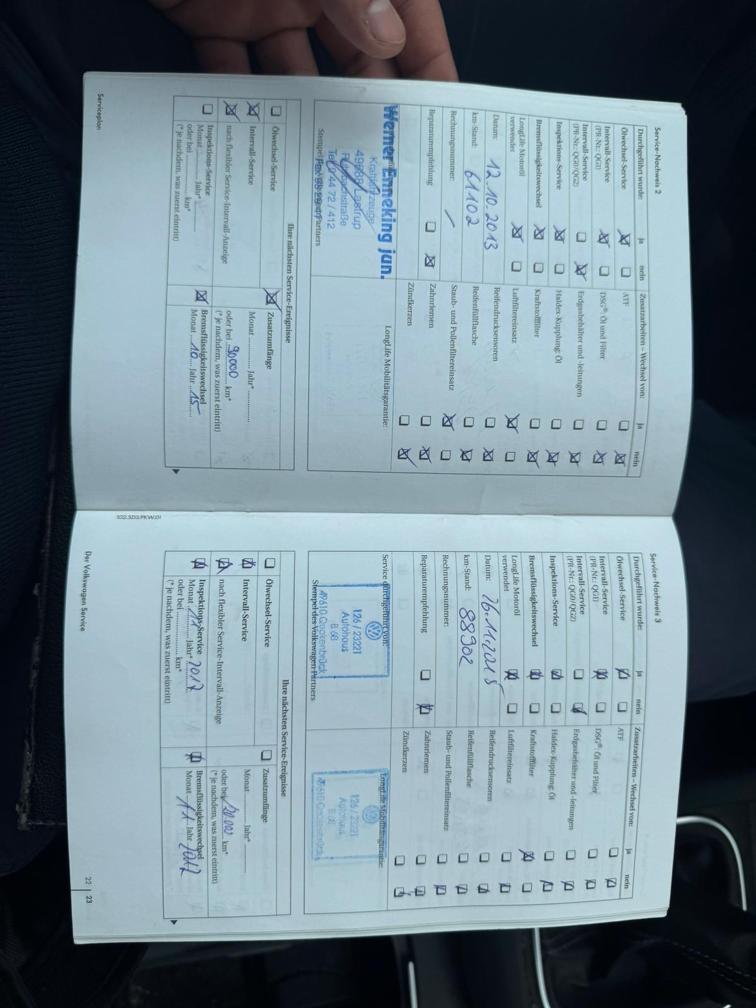 Service-Nachweis 2
Durchgeführt wurde: ja nein
Ölwechsel-Service
Intervall-Service
(PR-Nr.: QG1)
Intervall-Service
(PR-Nr.: QG0/QG2)
Inspektions-Service
Bremsflüssigkeitswechsel
LongLife Motoröl
verwendet
Datum: 12.10.2013
km-Stand: 61102
Rechnungsnummer: /
Reparaturempfehlung
Zusatzarbeiten – Wechsel von: ja nein
ATF
DSG®: Öl und Filter
Erdgasbehälter und -leitungen
Haldex-Kupplung: Öl
Kraftstofffilter
Luftfiltereinsatz
Reifendrucksensoren
Reifenfüllflasche
Staub- und Pollenfiltereinsatz
Zahnriemen
Zündkerzen
Werner Enneking jun.
Kraftfahrzeuge
LongLife Mobilitätsgarantie:
Ihre nächsten Service-Ereignisse
Ölwechsel-Service
Intervall-Service
nach flexibler Service-Intervall-Anzeige
Inspektions-Service
Monat Jahr*
oder bei km*
(* je nachdem, was zuerst eintritt)
Zusatzumfänge
Monat Jahr*
oder bei 90000 km*
(* je nachdem, was zuerst eintritt)
Bremsflüssigkeitswechsel
Monat 10 Jahr 15
Serviceplan
Service-Nachweis 3
Durchgeführt wurde: ja nein
Ölwechsel-Service
Intervall-Service
(PR-Nr.: QG1)
Intervall-Service
(PR-Nr.: QG0/QG2)
Inspektions-Service
Bremsflüssigkeitswechsel
LongLife Motoröl
verwendet
Datum: 16.11.2015
km-Stand: 88902
Rechnungsnummer:
Reparaturempfehlung
Zusatzarbeiten – Wechsel von: ja nein
ATF
DSG®: Öl und Filter
Erdgasbehälter und -leitungen
Haldex-Kupplung: Öl
Kraftstofffilter
Luftfiltereinsatz
Reifendrucksensoren
Reifenfüllflasche
Staub- und Pollenfiltereinsatz
Zahnriemen
Zündkerzen
Service durchgeführt von:
126 / 23221
Autohaus
B 68
49610 Quakenbrück
Stempel des Volkswagen Partners
LongLife Mobilitätsgarantie:
126 / 23221
Autohaus
Ihre nächsten Service-Ereignisse
Ölwechsel-Service
Intervall-Service
nach flexibler Service-Intervall-Anzeige
Inspektions-Service
Monat 11 Jahr* 2017
oder bei km*
(* je nachdem, was zuerst eintritt)
Zusatzumfänge
Monat Jahr*
oder bei km*
(* je nachdem, was zuerst eintritt)
Bremsflüssigkeitswechsel
Monat 11 Jahr 2017
Der Volkswagen Service
22 23